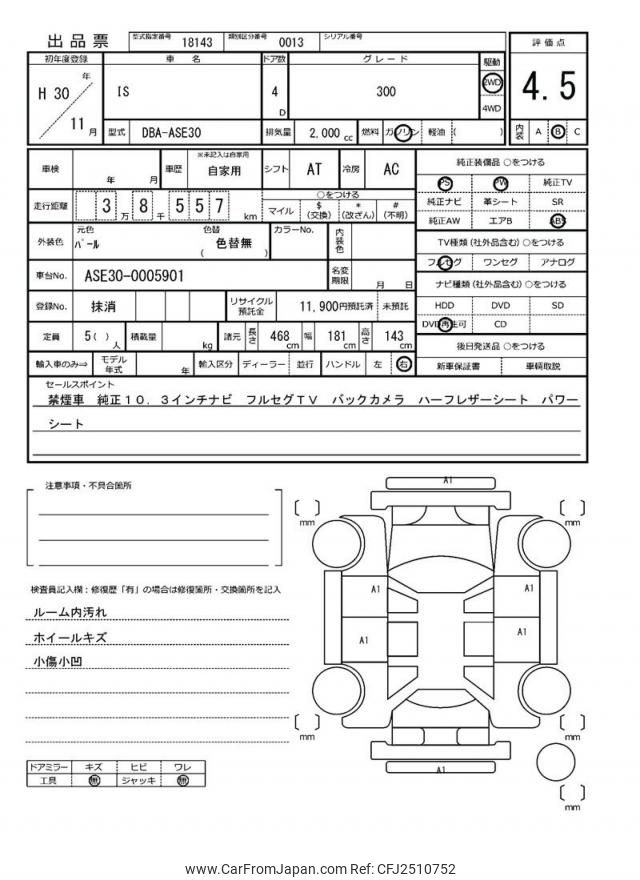 出品票
型式指定番号 18143 類別区分番号 0013 シリアル番号
初年度登録 車名 ドア数 グレード 駆動 評価点
H 30 年 11 月 IS 4 D 300 2WD 4WD 4.5
型式 DBA-ASE30 排気量 2,000 cc 燃料 ガソリン 軽油 ( ) 内装 A B C
車検 年 月 車歴 ※未記入は自家用 自家用 シフト AT 冷房 AC
走行距離 3 万 8 千 5 5 7 km
○をつける
マイル $(交換) *(改ざん) #(不明)
外装色 元色 パール 色替 ( 色替無 ) カラーNo. 内装色
車台No. ASE30-0005901 名変期限 月 日
登録No. 抹消 リサイクル預託金 11,900円預託済 未預託
定員 5( ) 人 積載量 kg 諸元 長さ 468 cm 幅 181 cm 高さ 143 cm
輸入車のみ⇒ モデル年式 年 輸入区分 ディーラー 並行 ハンドル 左 右
純正装備品 ○をつける
PS PW 純正TV
純正ナビ 革シート SR
純正AW エアB ABS
TV種類(社外品含む)○をつける
フルセグ ワンセグ アナログ
ナビ種類(社外品含む)○をつける
HDD DVD SD
DVD再生可 CD
後日発送品 ○をつける
新車保証書 車輌取説
セールスポイント
禁煙車 純正10.3インチナビ フルセグTV バックカメラ ハーフレザーシート パワー
シート
注意事項・不具合箇所
検査員記入欄:修復歴「有」の場合は修復箇所・交換箇所を記入
ルーム内汚れ
ホイールキズ
小傷小凹
ドアミラー キズ ヒビ ワレ
工具 無 ジャッキ 無
A1
[ ] mm [ ] mm
A1 A1
A1 A1
[ ] mm [ ] mm
A1
[ ] mm
www.CarFromJapan.com Ref: CFJ2510752